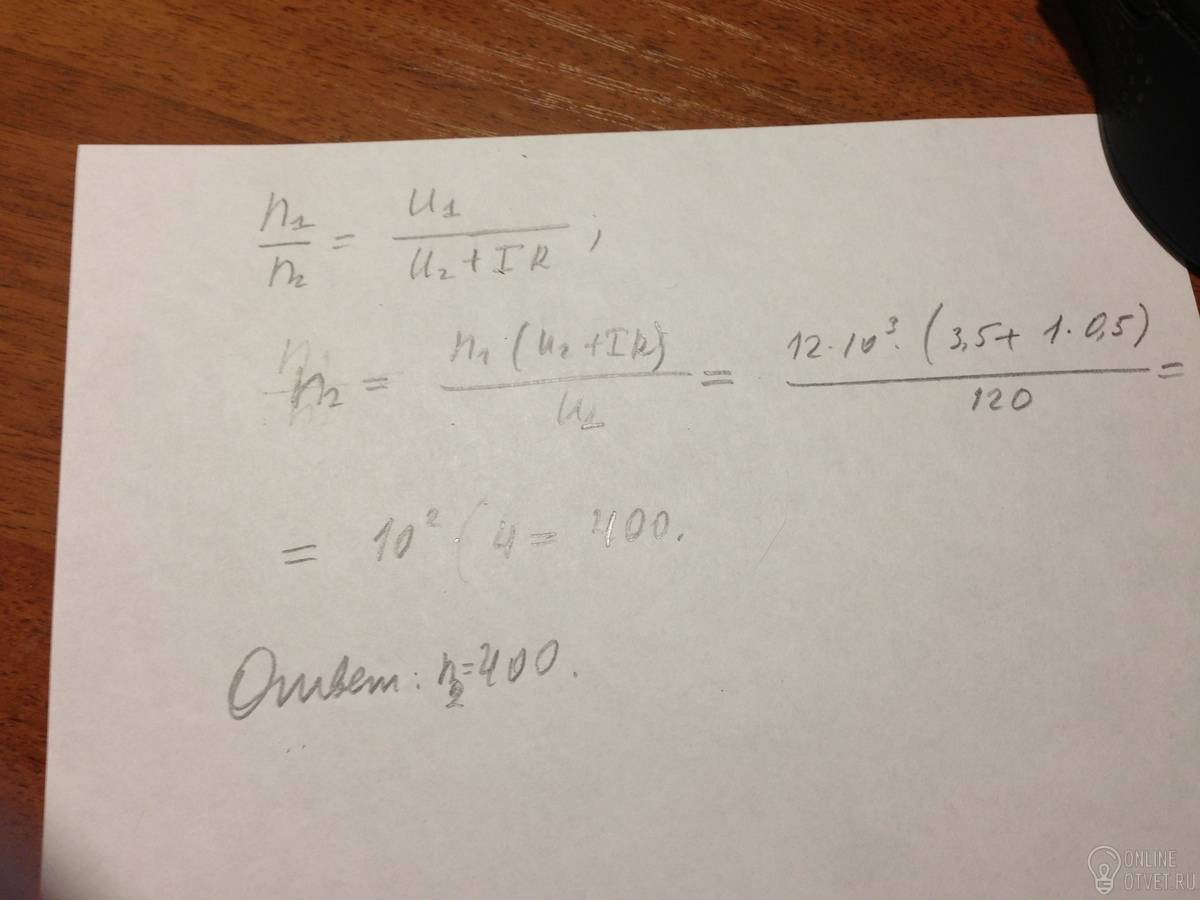 n₁/n₂ = u₁/(u₂ + IR) ;
n₂ = n₁(u₂ + IR)/u₁ = 12·10³·(3,5 + 1·0,5)/120 =
= 10² · ( 4 = 400.
Ответ: n₂ = 400.
ONLINE
OTVET.RU